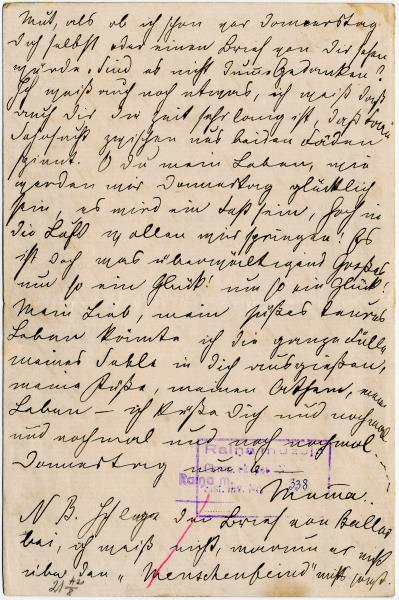 Mut, als ob ich schon vor Donnerstag
Dich selbst oder einen Brief von Dir sehen
würde. Sind es nicht dumme Gedanken?
Ich weiß auch noch etwas, ich weiß daß
auch Dir die Zeit sehr lang ist, daß
Sehnsucht zwischen uns beiden Fäden
spinnt. O du mein Leben, wie
werden wir Donnerstag glücklich
sein, es wird ein Fest sein, hoch in
die Luft wollen wir springen! Es
ist doch was überwältigend Großes
um so ein Glück! um so ein Glück!
Mein Lieb, mein süßes teures
Leben könnte ich die ganze Fülle
meiner Seele in dich ausgießen,
meine Küße, meinen Athem, mein
Leben – ich küße Dich und nochmal
und nochmal und noch nochmal. –
Donnerstag um 6 –
Raina m
Raina m.
338
Mama.
N.B. Ich lege den Brief von
bei, ich weiß nicht, warum er nicht
über den „Menschenfeind" mitt